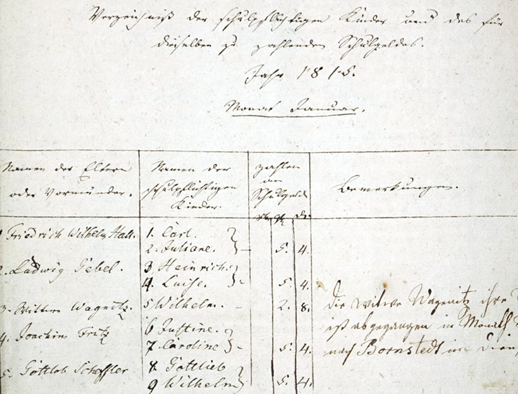 Verzeichniß der schulpflichtigen Kinder und das für
dieselben zu zahlenden Schulgeldes.
Jahr 1815.
Monat Januar.
Namen der Eltern
oder Vormünder.
Namen der
schulpflichtigen
Kinder.
zahlen
an
Schulgeld
Bemerkungen.
1 Friedrich Wilhelm
1. Carl.
2. Juliane.
5. 4.
2. Ludwig Gebel.
3 Heinrich
4. Luise.
5. 4.
3. Wittwe Wagnitz.
5 Wilhelm.
2. 8.
Die Witwe Wagnitz ihre
ist abgegangen in Monath
nach Bornstedt
4. Joachim Fritz
6 Justine.
7 Caroline
5. 4.
5. Gottlob Scheffler
8 Gottlieb
9 Wilhelm
5. 4.